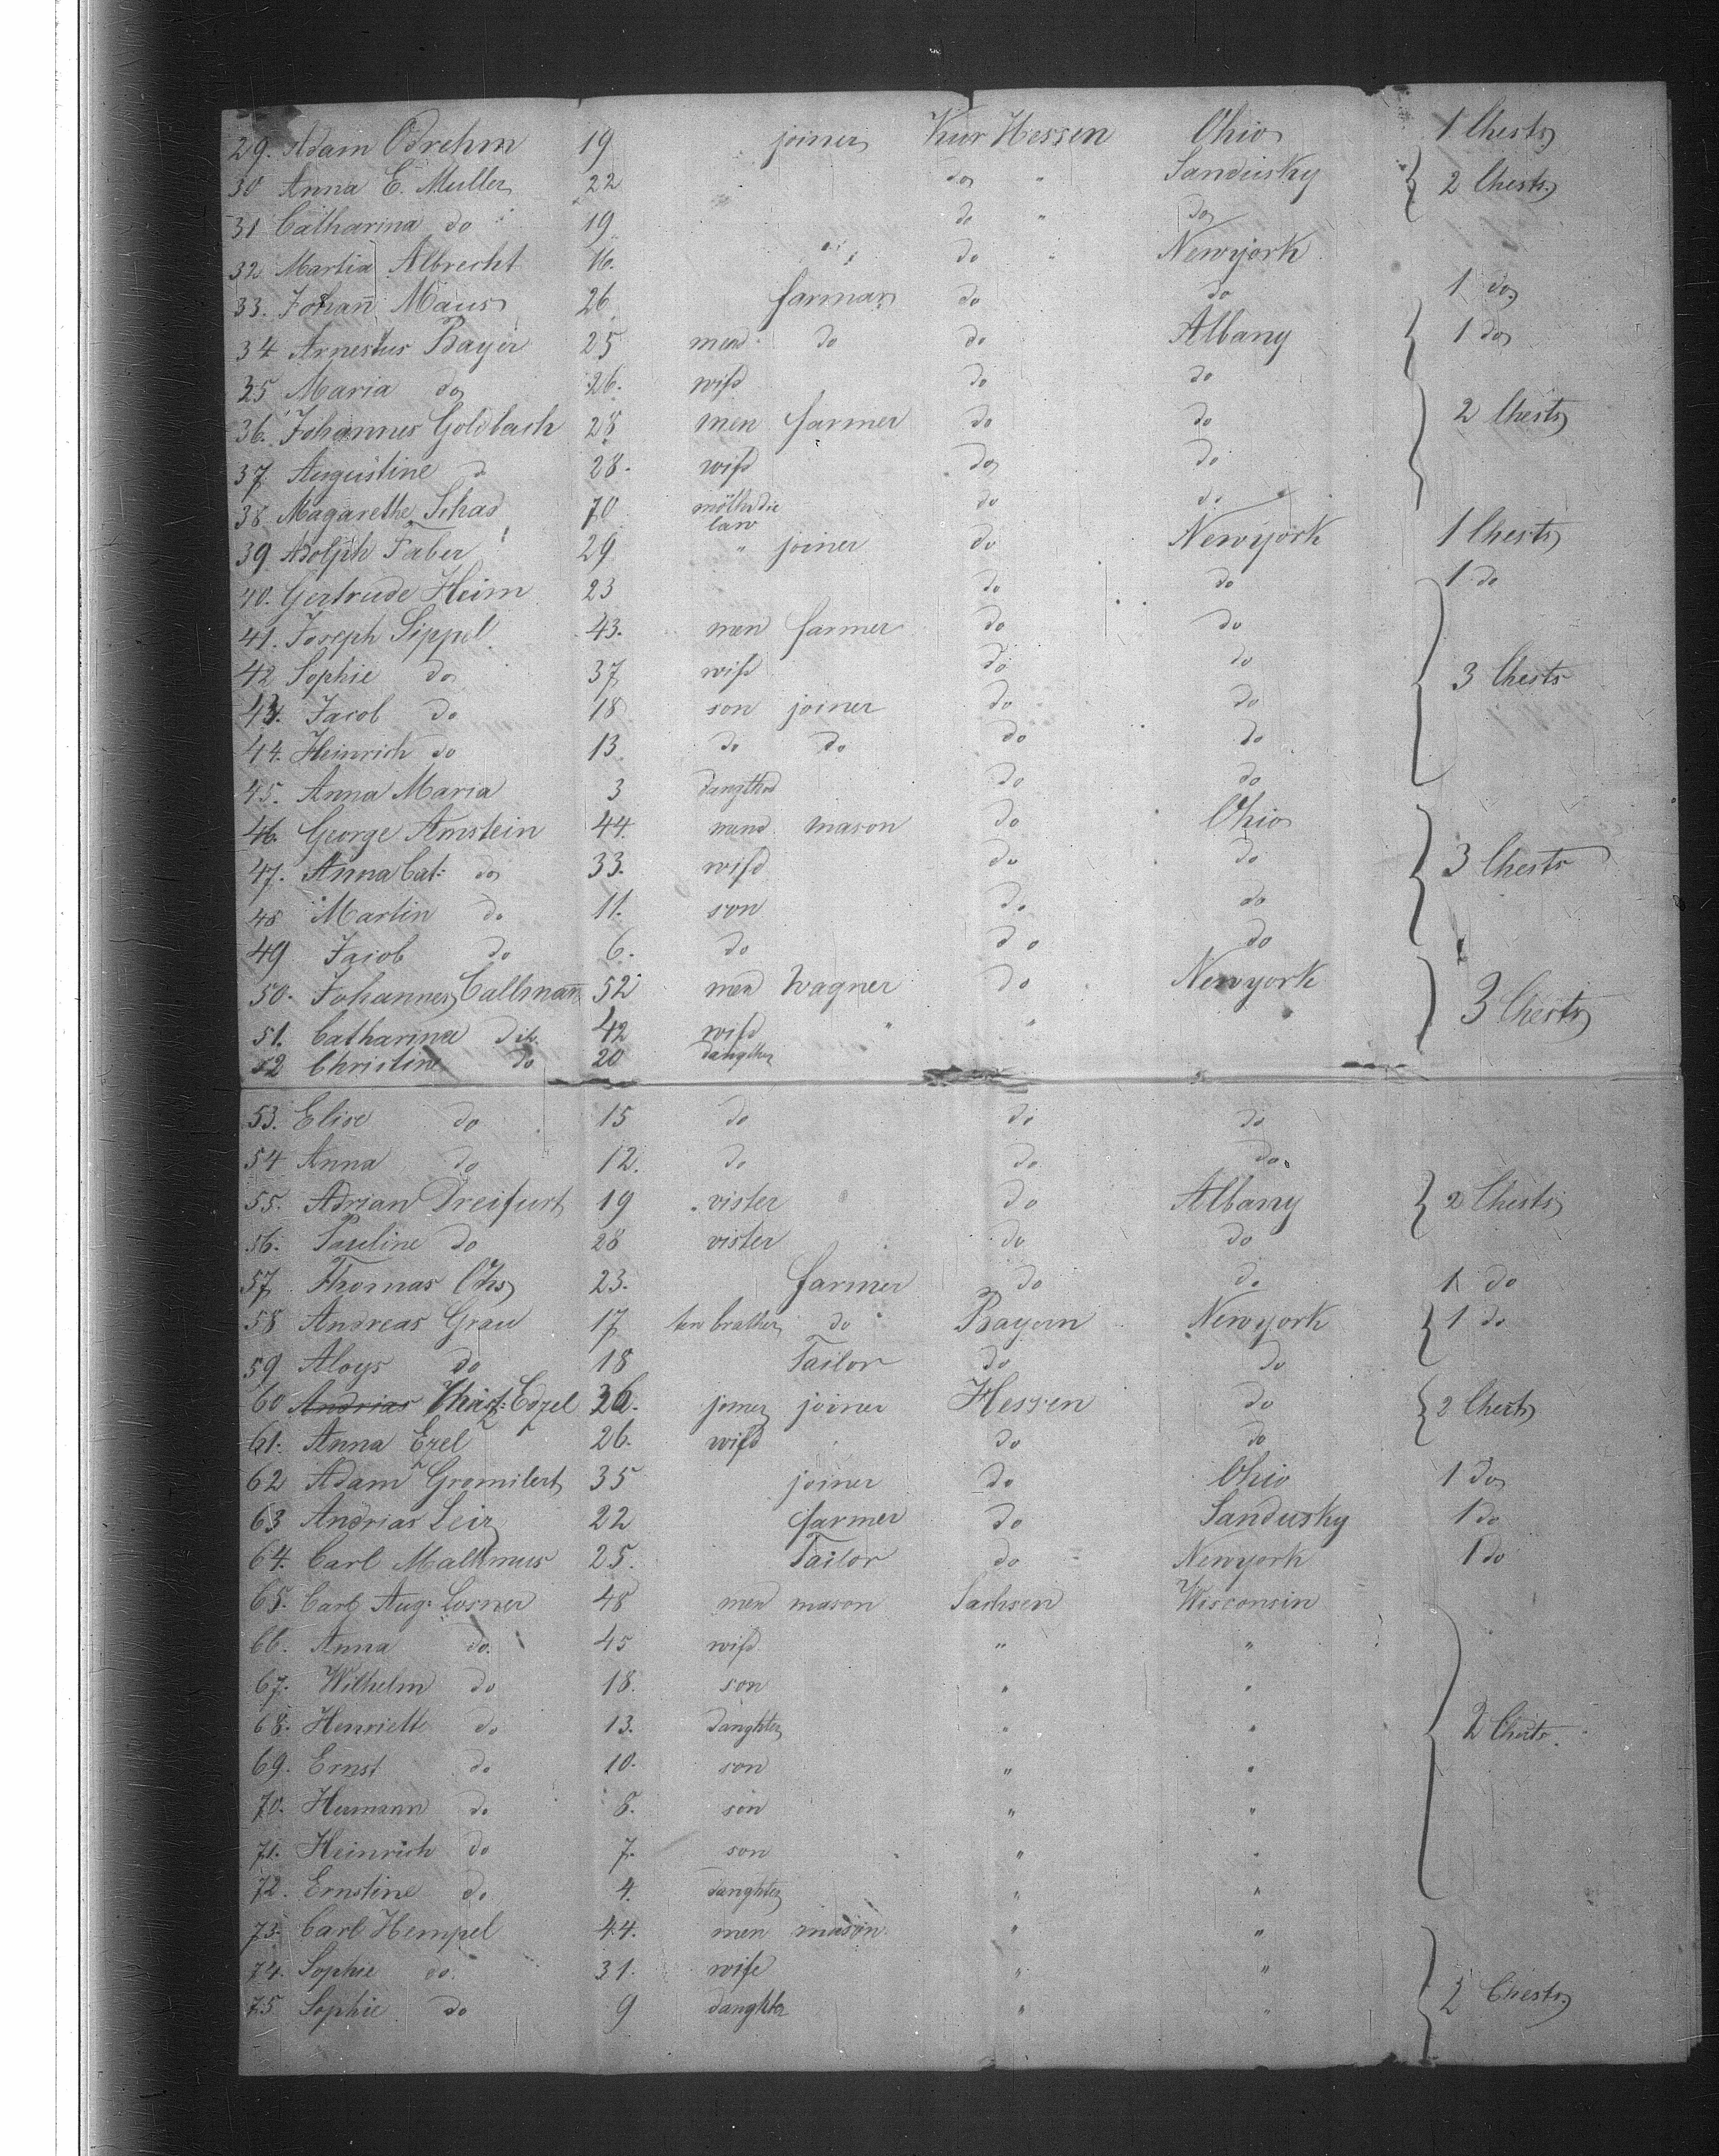 29. Adam Odrehm 19 joiner Kur Hessen Ohio 1 Chests
30 Anna E. Muller 22 do " Sandusky 2 Chests
31 Catharina do 19 do " do
32 Martin Albrecht 16. do " Newyork
33. Johan̄ Maus 26 farmar do do 1 do
34 Arnestus Bayer 25 men do do Albany 1 do
35 Maria do 26. wife do do
36. Johannes Goldbach 28 men farmer do do 2 Chests
37 Augustine do 28. wife do do
38 Magarethe Schad 70 do do
law
39 Adolph Faber 29 " joiner do Newyork 1 Chests
40. Gertrude Heim 23 do do 1 do
41. Joseph Sippel 43. men farmer do do
42 Sophie do 37 wife do do 3 Chests
43. Jacob do 18 son joiner do do
44. Heinrich do 13. do do do do
45. Anna Maria 3 do do
46. George Amstein 44. mason do Ohio
47. Anna Cat: do 33. wife do do 3 Chests
48 Martin do 11. son do do
49 Jacob do 6. do do do
50. Johannes Callman̄ 52 men Wagner do Newyork 3 Chests
51. Catharina dito 42 wife " "
52 Christine do 20 daugther
53. Elise do 15 do do do
54 Anna do 12. do do do
55. Adrian Dreifurt 19 vister do Albany 2 Chests
56. Pauline do 28 vister do do
57 Thomas Ohs 23. farmer do do 1 do
58 Andreas Grau 17 brather do Bayern Newyork 1 do
59 Aloys do 18 Tailor do do
60 Andrias Christ: Edzel 36. joiner joiner Hessen do 2 Chests
61. Anna Ezel 26. wife do do
62 Adam Gromilert 35 joiner do Ohio 1 do
63 Andrias Leir 22 farmer do Sandusky 1 do
64. Carl Malkmus 25. Tailor do Newyork 1 do
65. Carl Aug: Losner 48 men mason Sachsen Wisconsin
66. Anna do. 45 wife " "
67. Wilhelm do 18. son " "
68. Henriette do 13. daughter " " 2 Chests
69. Ernst do 10. son " "
70. Hermann do 8. son " "
71. Heinrich do 7. son " "
72. Ernstine do 4. daughter " "
73. Carl Hempel 44. men mason " "
74. Sophie do. 31. wife " "
75 Sophie do 9 daughter " " 2 Chests